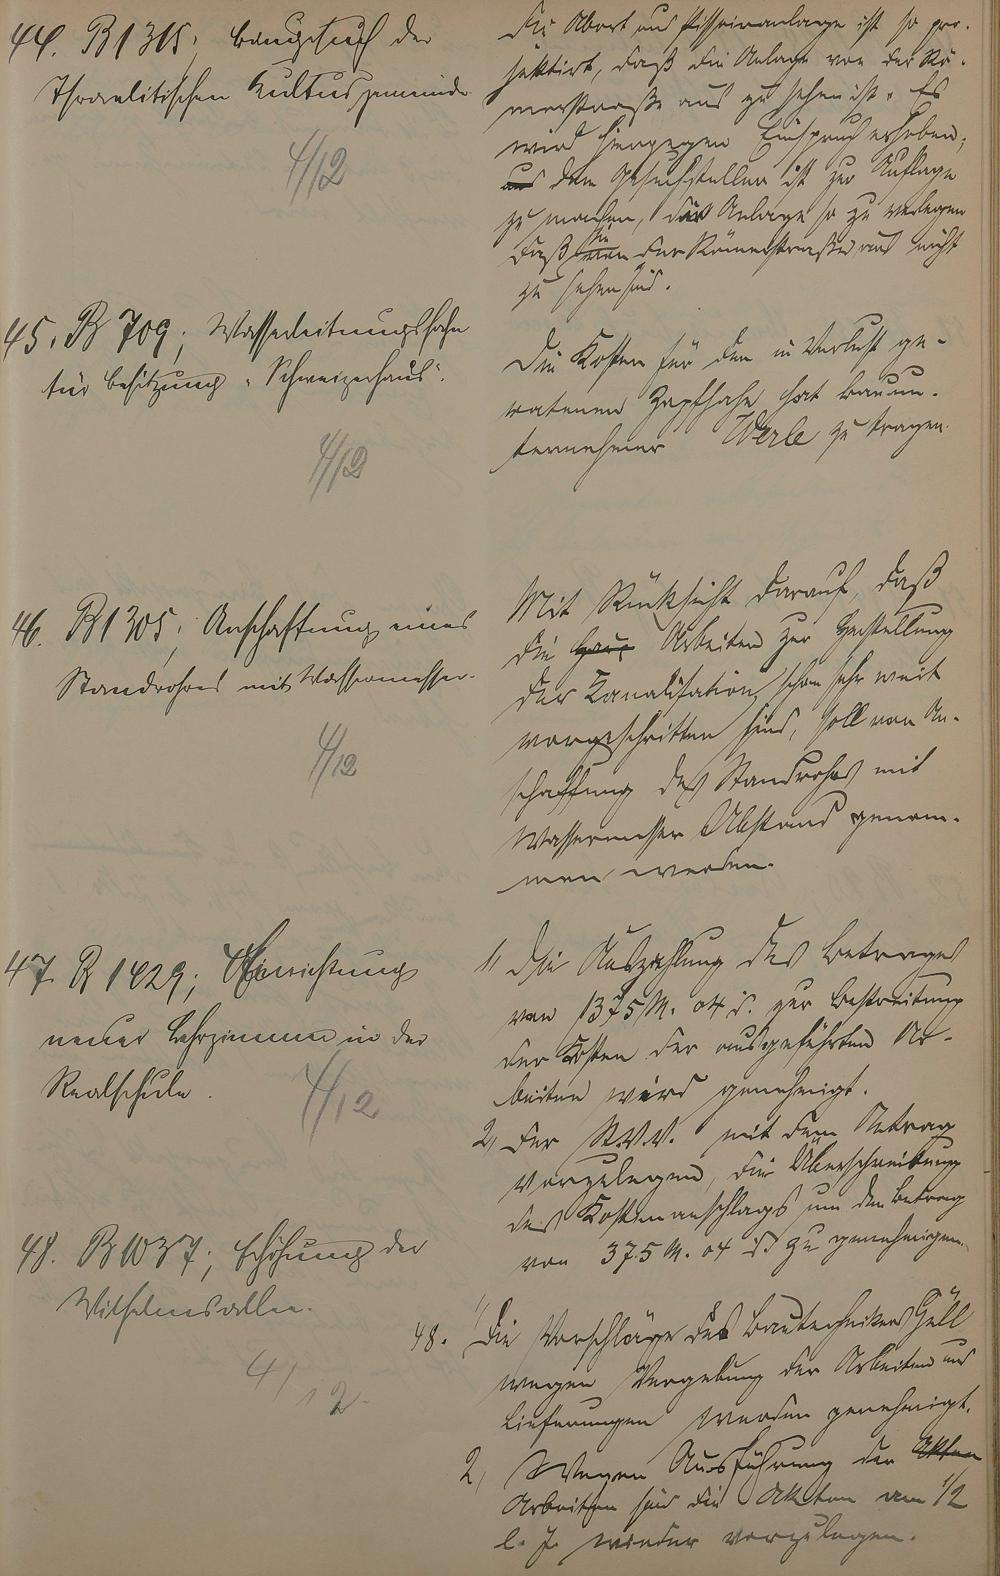 44. B 1315; Baugesuch der
Israelitischen Kultusgemeinde
4/12
Die Abort und Pissoiranlage ist so pro-
jektirt, daß die Anlage von der Rö-
merstraße aus zu sehen ist. Es
wird hiergegen Einspruch erhoben;
aus dem Gesuchsteller ist zur Auflage
zu machen, die Anlage so zu verlegen
daß sie von der Römerstraße aus nicht
zu sehen sind.
45. B 709; Wasserleitungshahn
für Besitzung "Schweizerhaus".
4/12
Die Kosten für den in Verlust ge-
ratenen Zapfhahn hat Bauun-
ternehmer Werle zu tragen.
46. B 1305; Anschaffung eines
Standrohres mit Wassermesser.
4/12
Mit Rücksicht darauf, daß
die Arbeiten zur Herstellung
der Kanalisation schon sehr weit
vorgeschritten sind, soll von An-
schaffung des Standrohres mit
Wassermesser Abstand genom-
men werden.
47. B 1429; Einrichtung
neuer Lehrzimmer in der
Realschule.
4/12
1, Die Auszahlung des Betrages
von 1375 M. 04 d. zur Bestreitung
der Kosten der ausgeführten Ar-
beiten wird genehmigt.
2, Der St.V.V. mit dem Antrag
vorzulegen, die Überschreitung
des Kostenanschlags um den Betrag
von 375 M. 04 d zu genehmigen.
48. B 1037; Erhöhung der
Wilhelmsallee.
4/12.
48. 1, Die Vorschläge des Bautechnikers Göll
wegen Vergebung der Arbeiten und
Lieferungen werden genehmigt.
2, Wegen Ausführung der Akten
Arbeiten sind die Akten am 1/2
l. J. wieder vorzulegen.